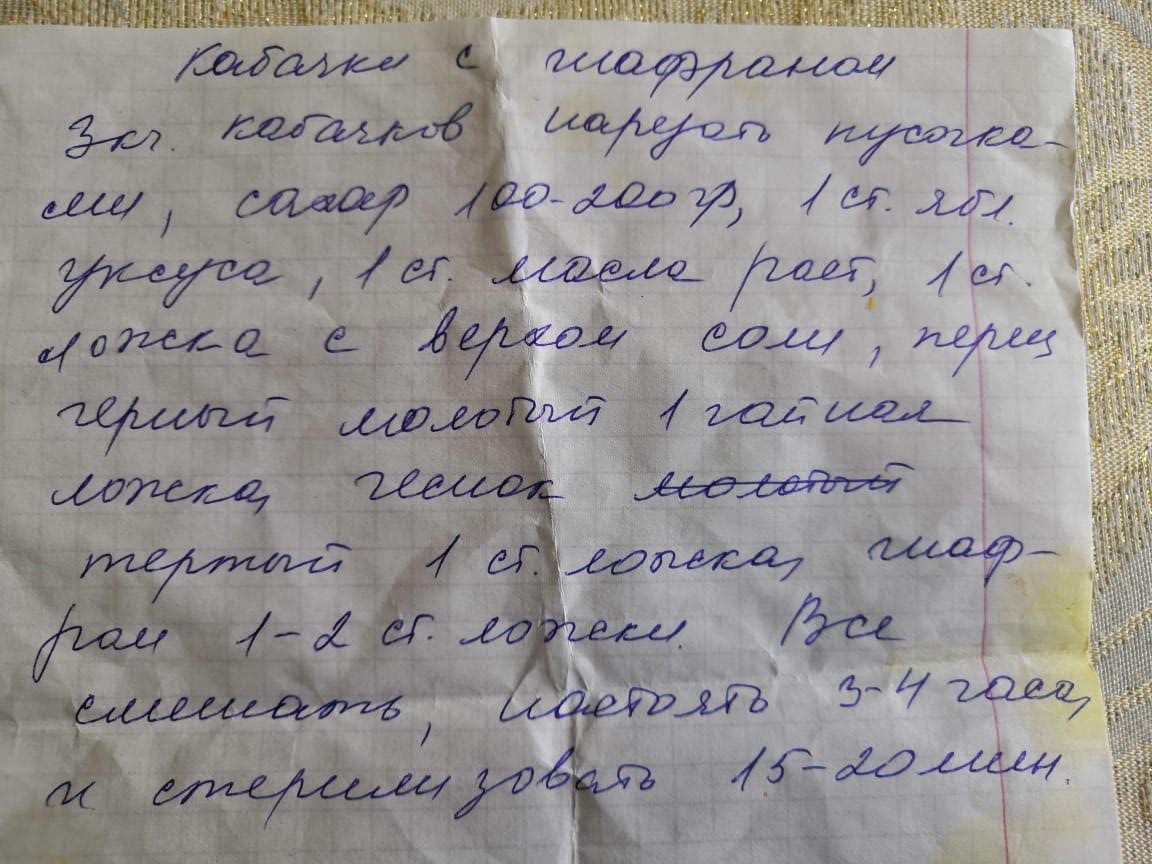 Кабачки с шафраном
3 кг. кабачков нарезать кусочка-
ми, сахар 100-200 гр, 1 ст. ябл.
уксуса, 1 ст. масла раст, 1 ст.
ложка с верхом соли, перец
черный молотый 1 чайная
ложка, чеснок молотый
тертый 1 ст. ложка, шаф-
ран 1-2 ст. ложки. Все
смешать, настоять 3-4 часа,
и стерилизовать 15-20 мин.